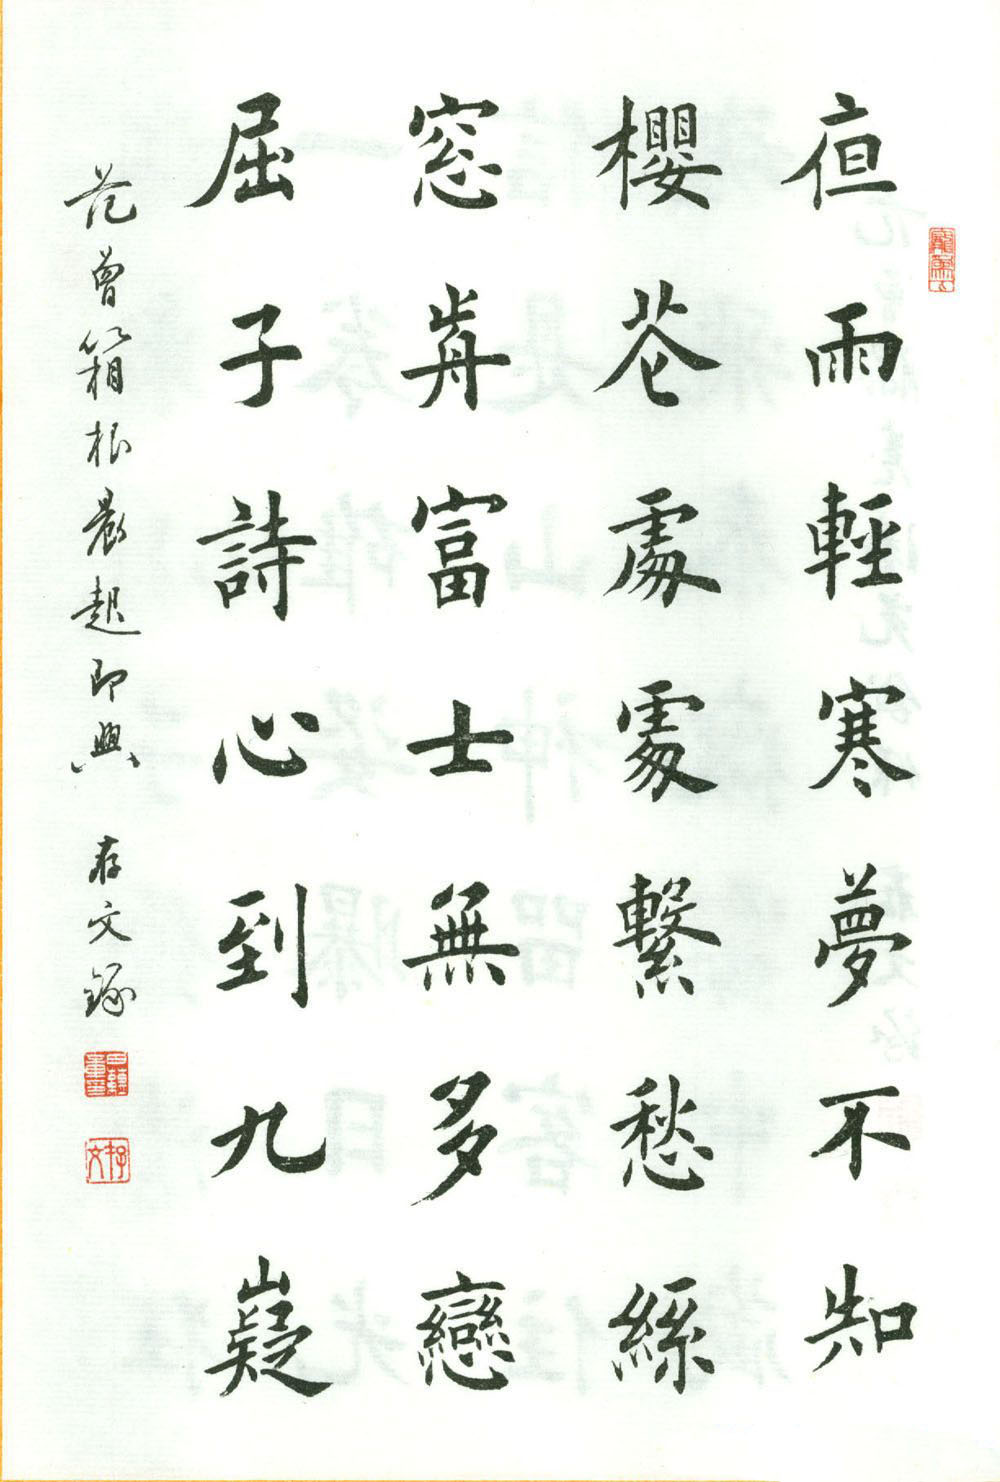 亱雨輕寒夢不知
櫻花處處繫愁絲
窓歬富士無多戀
屈子詩心到九嶷
范曾箱根晨起即興 存文錄
存文